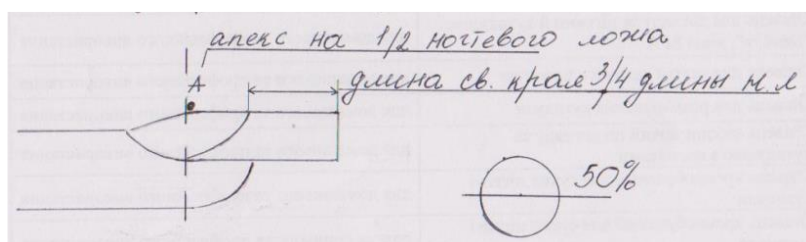 апекс на 1/2 ногтевого ложа
А
длина св. края 3/4 длины н.л
50%